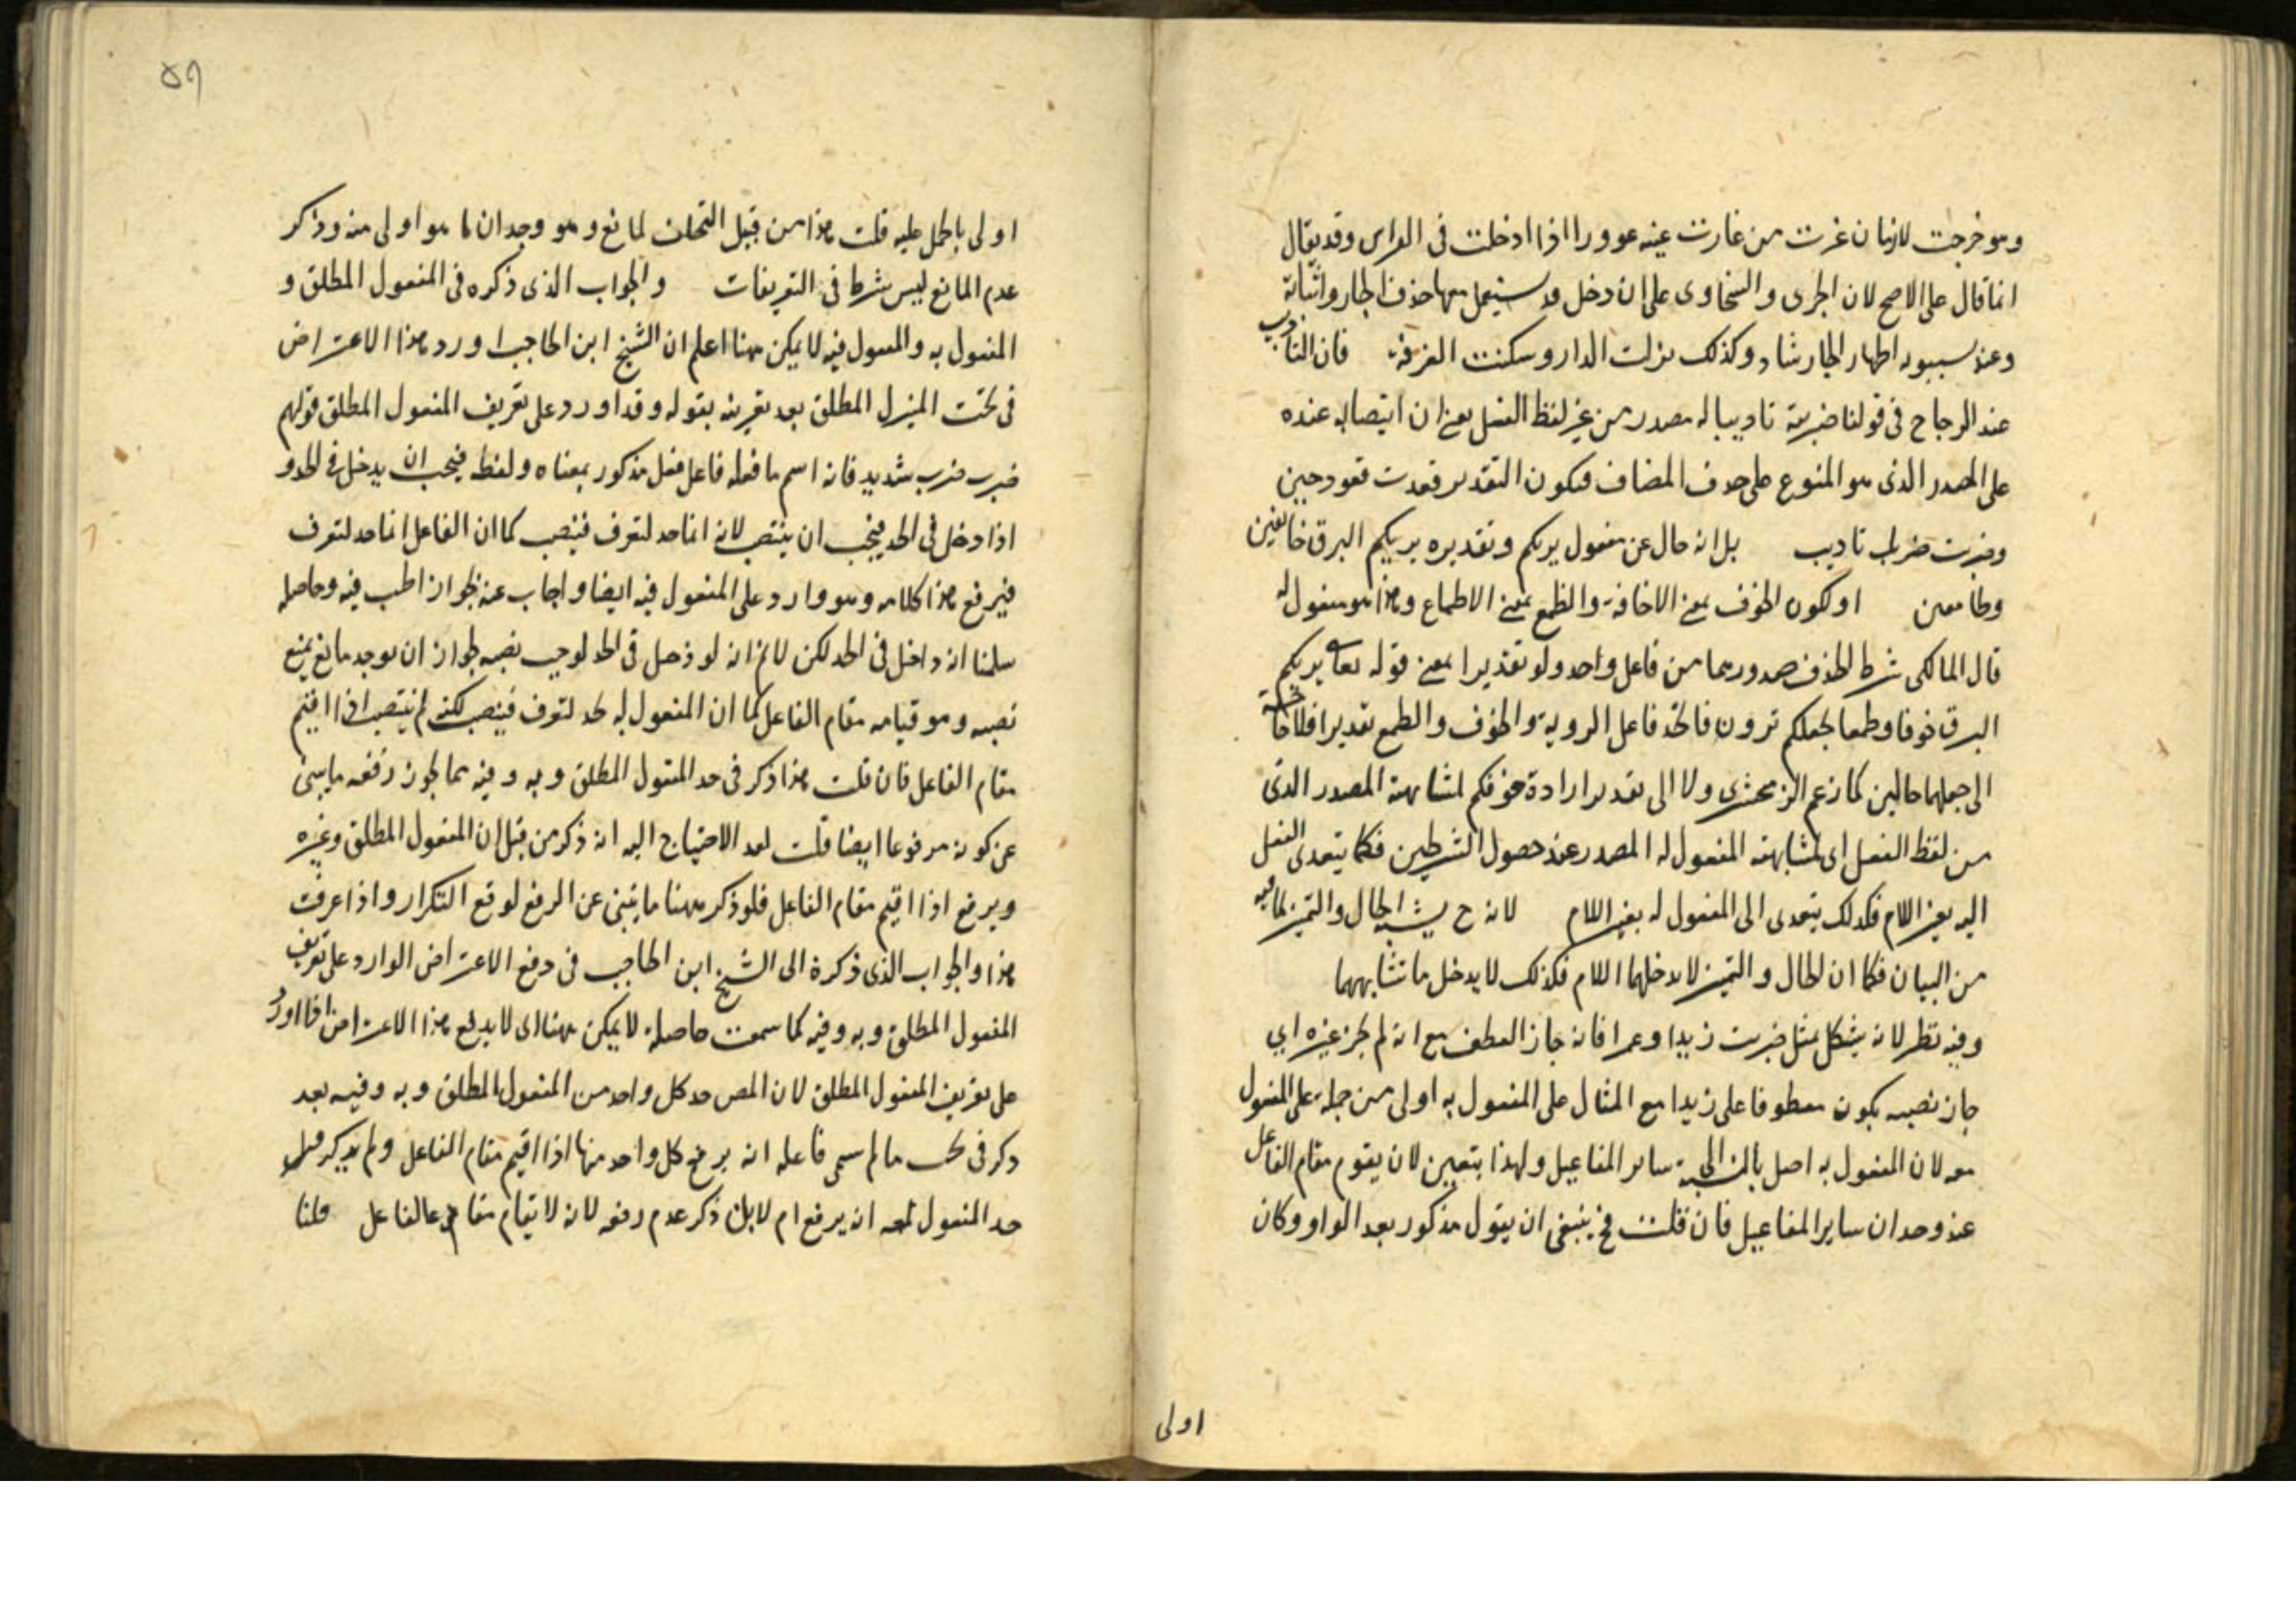 وهو خرجت لازمان غرت من غارت عينه عوورا اذا ادخلت فى الراس وقد يقال
انما قال على الاصح لان الجرمى والسخاوى على ان دخل قد يستعمل معها حذف الجار واثباته
وعند سيبويه اظهار الجار شاذ وكذلك نزلت الدار وسكنت الغرفة فان التاديب
عند الزجاج فى قولنا ضربته تاديبا له مصدر من غير لفظ الفعل يعنى ان انتصابه عنده
على المصدر الذى هو المنوع على حذف المضاف فيكون التقدير قعدت قعود جبن
وضربت ضرب تاديب بل انه حال عن مفعول يريكم وتقديره يريكم البرق خائفين
وطامعين او يكون الخوف بمعنى الاخافة والطمع بمعنى الاطماع وهذا هو مفعول له
قال المالكى شرط الحذف صدورهما من فاعل واحد ولو تقديرا بمعنى قوله تعالى يريكم
البرق خوفا وطمعا يجعلكم ترون فاتحد فاعل الروية والخوف والطمع تقديرا فلا حاجة
الى جعلهما حالين كما زعم الزمخشرى ولا الى تقدير ارادة خوفكم لمشابهة المصدر الذى
من لفظ الفعل اى لمشابهته المفعول له المصدر عند حصول الشرطين فكما يتعدى الفعل
اليه بغير اللام فكذلك يتعدى الى المفعول له بغير اللام لانه ح يشبه الحال والتمييز لما فيه
من البيان فكما ان الحال والتمييز لا يدخلهما اللام فكذلك لا يدخل ما تشابههما
وفيه نظر لانه يشكل بمثل ضربت زيدا وعمرا فانه جاز العطف مع انه لم يجز غيره اي
جاز نصبه بكون معطوفا على زيدا مع المثال على المفعول به اولى من جمله على المفعول
معه لان المفعول به اصل بالنسبة الى ساير المفاعيل ولهذا يتعين لان يقوم مقام الفاعل
عند وجدان ساير المفاعيل فان قلت فح ينبغى ان يقول مذكور بعد الواو وكان
اولى
٥٩
اولى بالحمل عليه قلت هذا من قبيل التخلف لمانع وهو وجدان ما هو اولى منه وذكر
عدم المانع ليس شرطا فى التعريفات والجواب الذى ذكره فى المفعول المطلق و
المفعول به والمفعول فيه لا يمكن ههنا اعلم ان الشيخ ابن الحاجب اورد هذا الاعتراض
فى بحث المفعول المطلق بعد تعريفه بقوله وقد اورد على تعريف المفعول المطلق قولهم
ضرب ضرب شديد فانه اسم ما فعله فاعل فعل مذكور بمعناه ولفظه فيجب ان يدخل فى الحد و
اذا دخل فى الحد فيجب ان ينتصب لانه انما حد لتعرف فينصب كما ان الفاعل انما حد لتعرف
فيرفع هذا كلامه وهو وارد على المفعول فيه ايضا واجاب عنه بجواز اطنب فيه وحاصله
سلمنا انه داخل فى الحد لكن لانم انه لو دخل فى الحد لوجب نصبه لجواز ان يوجد مانع يمنع
نصبه وهو قيامه مقام الفاعل كما ان المفعول له حد لتعرف فينصب لكنه لم ينتصب اذا اقيم
مقام الفاعل فان قلت هذا ذكر فى حد المفعول المطلق وبه وفيه مما يجوز رفعه ما ينبئ
عن كونه مرفوعا ايضا قلت لعد الاحتياج اليه انه ذكر من قبل ان المفعول المطلق وغيره
ويرفع اذا اقيم مقام الفاعل فلو ذكر ههنا ما ينبئ عن الرفع لوقع التكرار واذا عرفت
هذا والجواب الذى ذكرة الى الشيخ ابن الحاجب فى دفع الاعتراض الوارد على تعريف
المفعول المطلق وبه وفيه كما سمعت حاصله لا يمكن ههنا اى لا يدفع هذا الاعتراض اذا اورد
على تعريف المفعول المطلق لان المص حد كل واحد من المفعول المطلق وبه وفيه بعد
ذكر فى بحث ما لم يسم فاعله انه يرفع كل واحد منها اذا اقيم مقام الفاعل ولم يذكر قبل
حد المفعول معه انه يرفع ام لا بل ذكر عدم رفعه لانه لا يقام مقام الفاعل قلنا